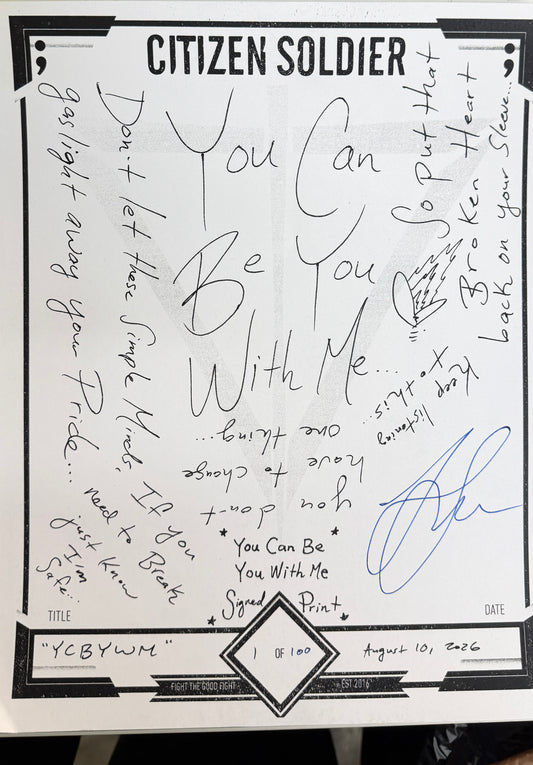 CITIZEN SOLDIER
You Can
Be You
With Me...
Don't let these Simple Minds,
gaslight away your Pride...
If you
need to Break
just know
I'm
Safe...
So put that
Broken Heart
back on your Sleeve...
Keep listening
to this...
you don't
have to change
one thing...
You Can Be
You With Me
Signed Print
TITLE
DATE
"YCBYWM"
1 OF 100
August 10, 2026
FIGHT THE GOOD FIGHT
EST 2016